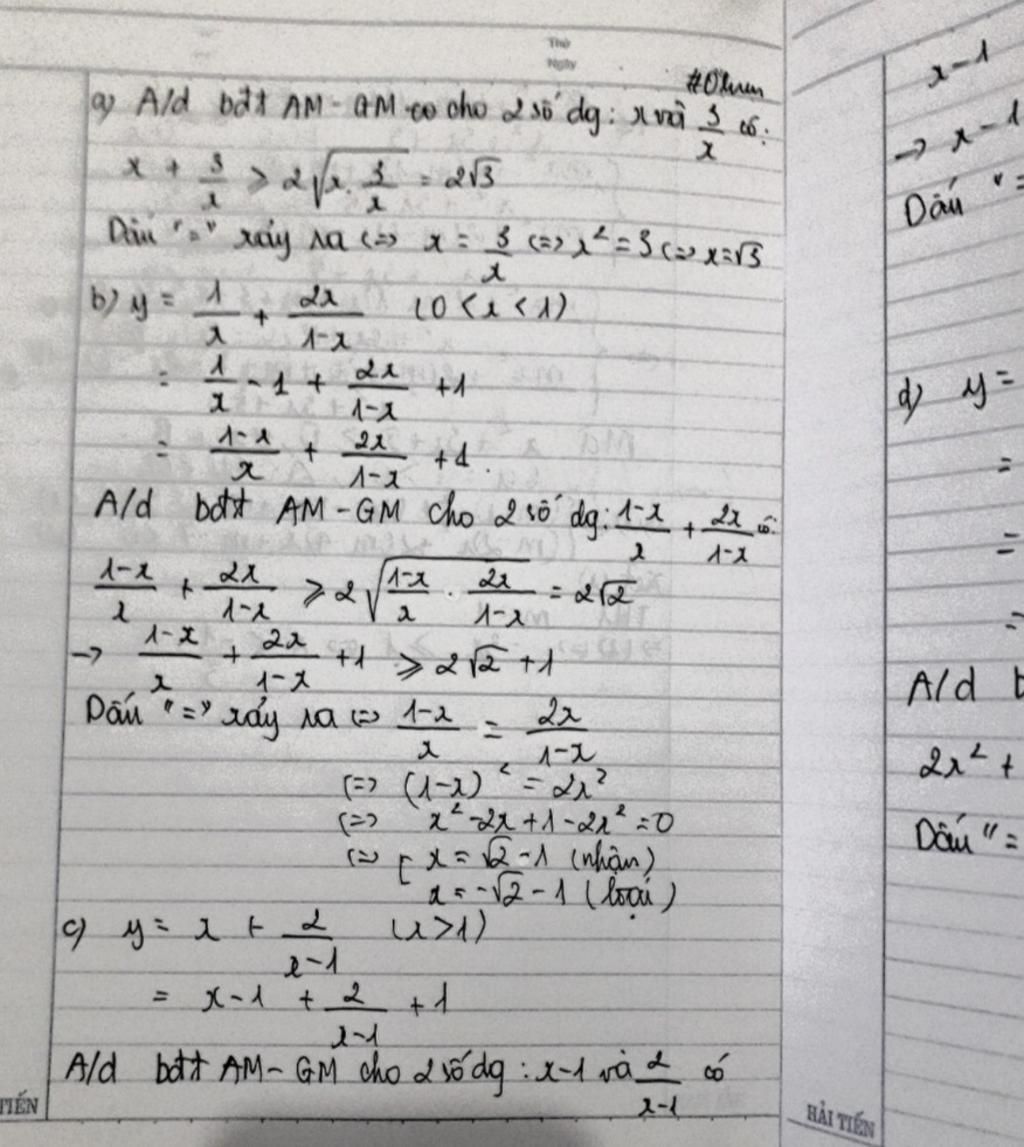 Thứ
Ngày
#Olwen
a) A/d bđt AM-GM co cho 2 số dg: x và 3/x có:
x + 3/x ≥ 2√(x. 3/x) = 2√3
Dấu "=" xảy ra <=> x = 3/x <=> x² = 3 <=> x=√3
b) y = 1/x + 2x/(1-x) (0 < x < 1)
= 1/x - 1 + 2x/(1-x) +1
= (1-x)/x + 2x/(1-x) +1.
A/d bđt AM-GM cho 2 số dg: (1-x)/x + 2x/(1-x) có:
(1-x)/x + 2x/(1-x) ≥ 2√((1-x)/x . 2x/(1-x)) = 2√2
→ (1-x)/x + 2x/(1-x) +1 ≥ 2√2 +1
Dấu "=" xảy ra <=> (1-x)/x = 2x/(1-x)
<=> (1-x)² = 2x²
<=> x²-2x+1-2x²=0
<=> [ x = √2 -1 (nhận)
x = -√2 -1 (loại)
c) y = x + 2/(x-1) (x>1)
= x-1 + 2/(x-1) + 1
A/d bđt AM-GM cho 2 số dg: x-1 và 2/(x-1) có
TIẾN
x-1
→ x-1
Dấu "=
d) y =
=
=
=
A/d b
2x² +
Dấu "=
HẢI TIẾN